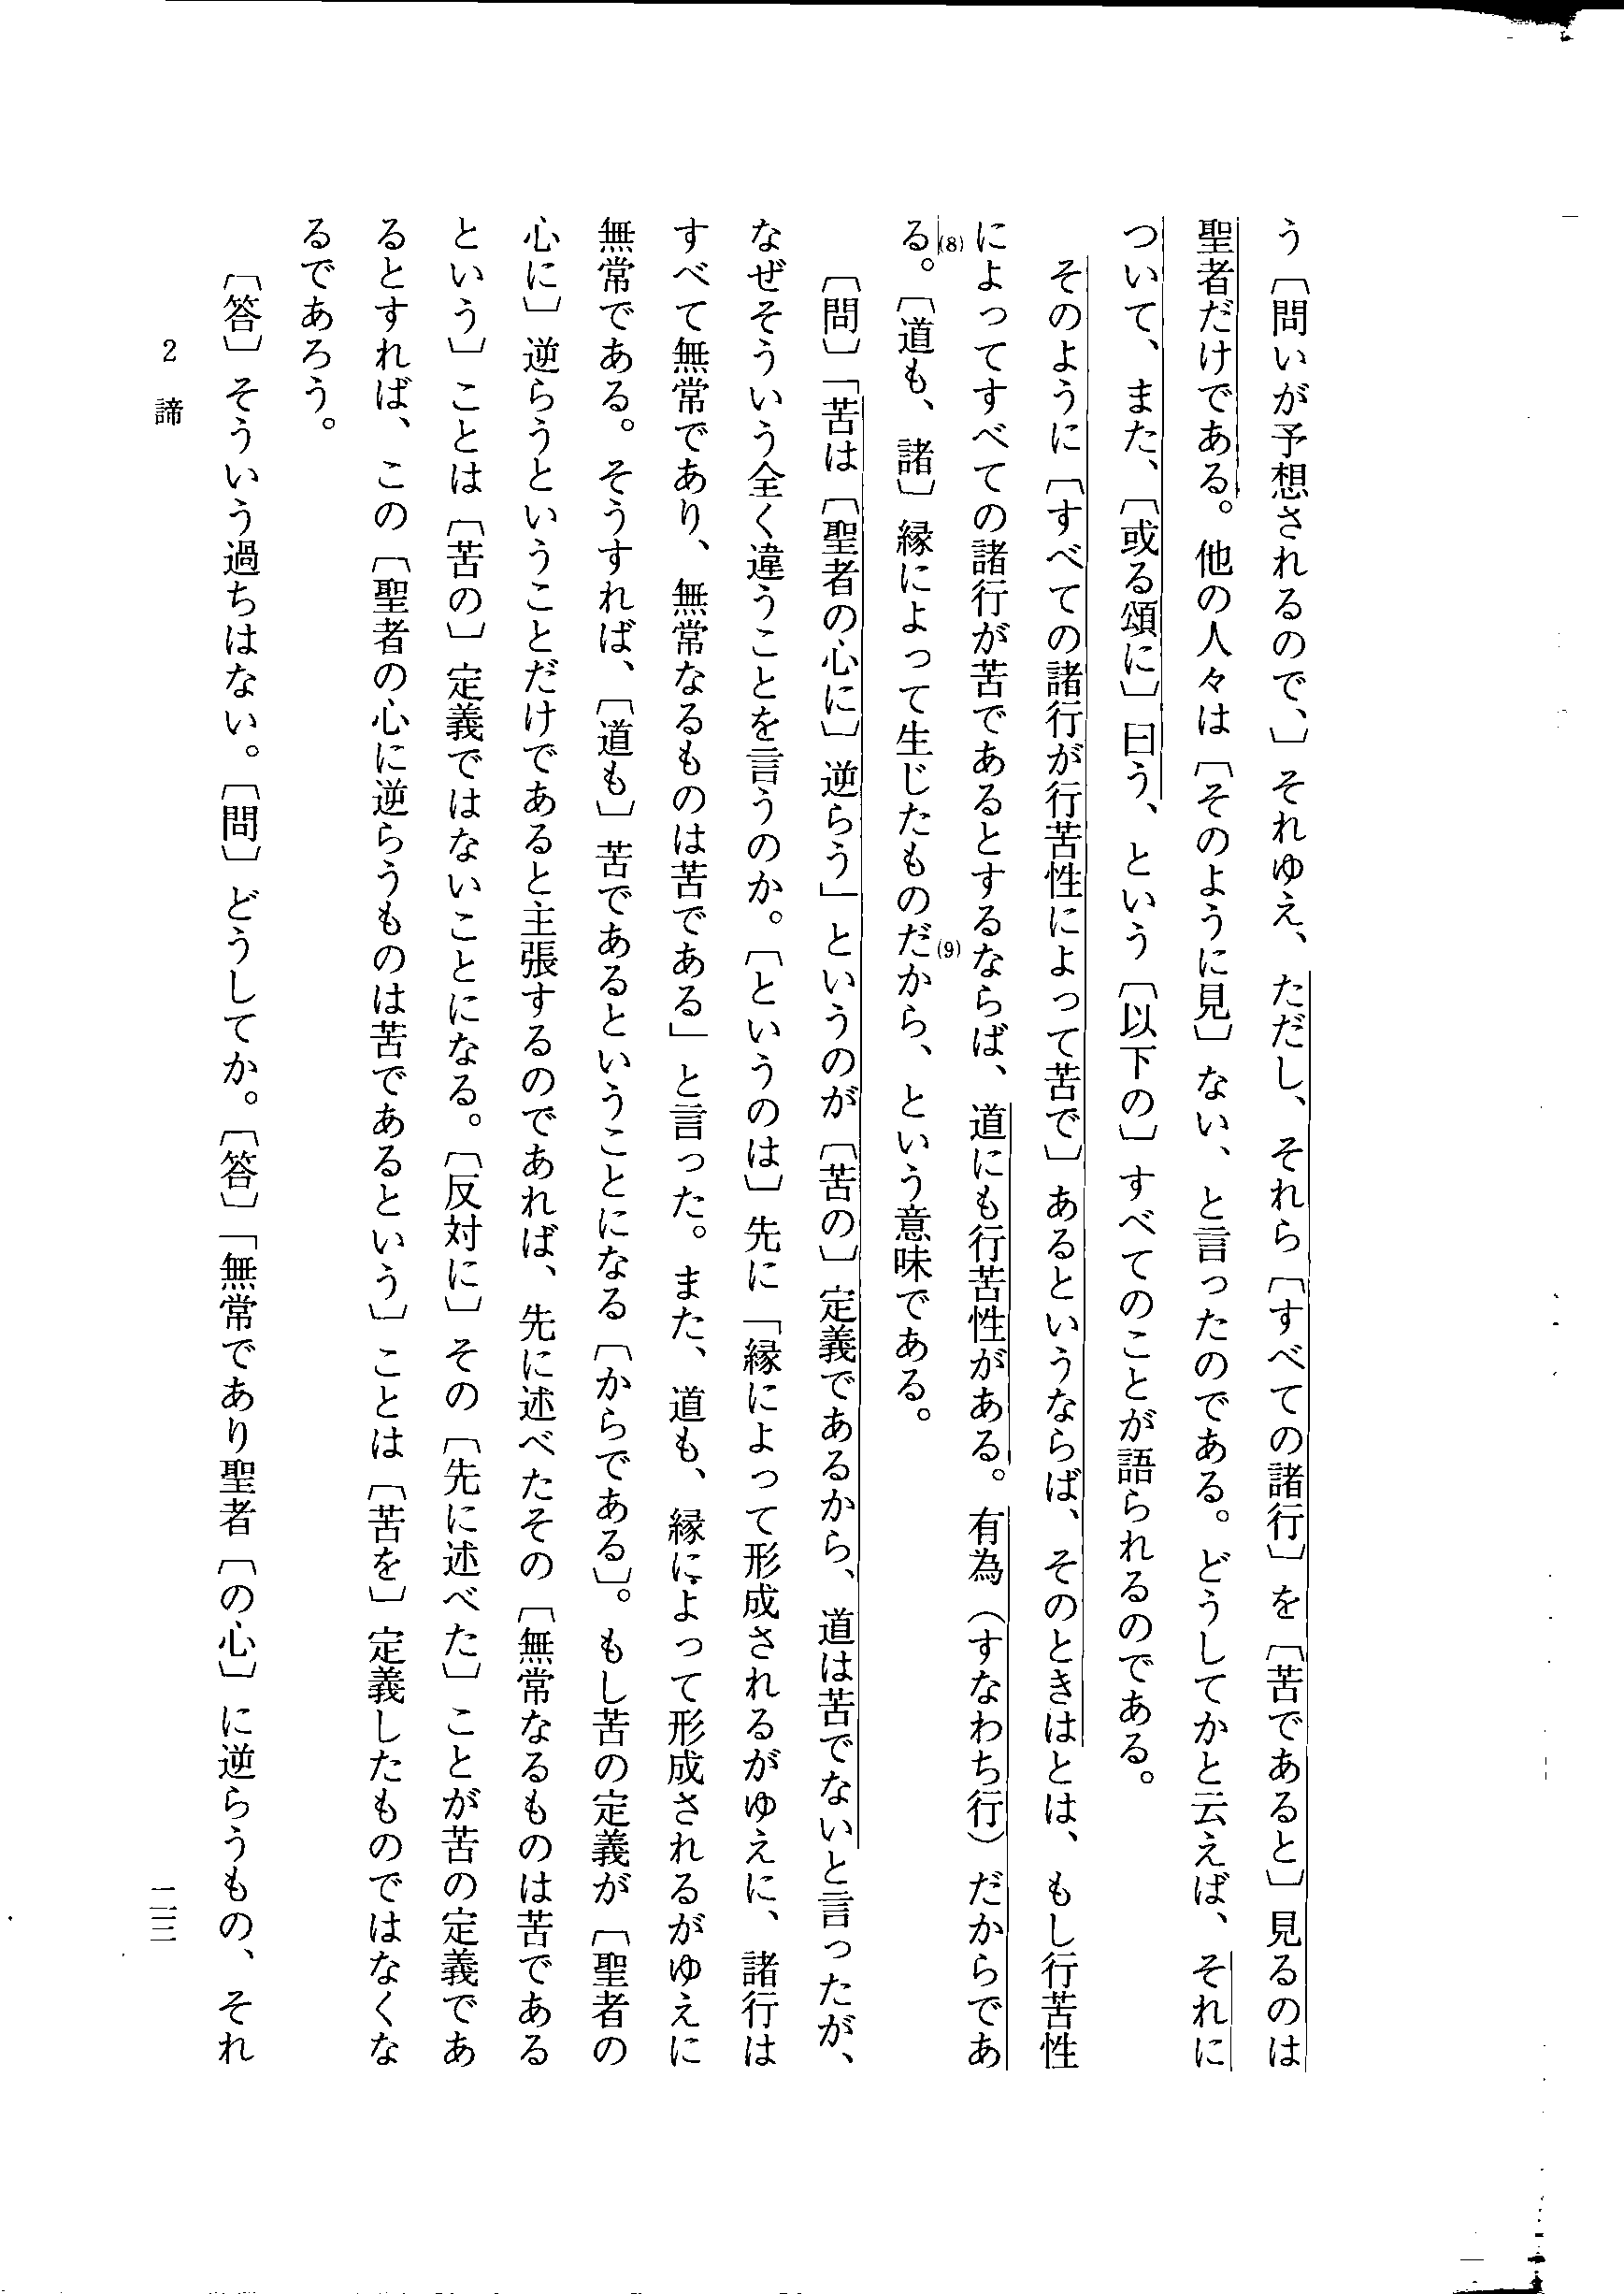 う〔問いが予想されるので、〕それゆえ、ただし、それら〔すべての諸行〕を〔苦であると〕見るのは
聖者だけである。他の人々は〔そのように見〕ない、と言ったのである。どうしてかと云えば、それに
ついて、また、〔或る頌に〕曰う、という〔以下の〕すべてのことが語られるのである。
そのように〔すべての諸行が行苦性によって苦で〕あるというならば、そのときはとは、もし行苦性
によってすべての諸行が苦であるとするならば、道にも行苦性がある。有為（すなわち行）だからであ
る。(8)〔道も、諸〕縁によって生じたものだから、(9)という意味である。
〔問〕「苦は〔聖者の心に〕逆らう」というのが〔苦の〕定義であるから、道は苦でないと言ったが、
なぜそういう全く違うことを言うのか。〔というのは〕先に「縁によって形成されるがゆえに、諸行は
すべて無常であり、無常なるものは苦である」と言った。また、道も、縁によって形成されるがゆえに
無常である。そうすれば、〔道も〕苦であるということになる〔からである〕。もし苦の定義が〔聖者の
心に〕逆らうということだけであると主張するのであれば、先に述べたその〔無常なるものは苦である
という〕ことは〔苦の〕定義ではないことになる。〔反対に〕その〔先に述べた〕ことが苦の定義であ
るとすれば、この〔聖者の心に逆らうものは苦であるという〕ことは〔苦を〕定義したものではなくな
るであろう。
〔答〕そういう過ちはない。〔問〕どうしてか。〔答〕「無常であり聖者〔の心〕に逆らうもの、それ
2 諦
一二三